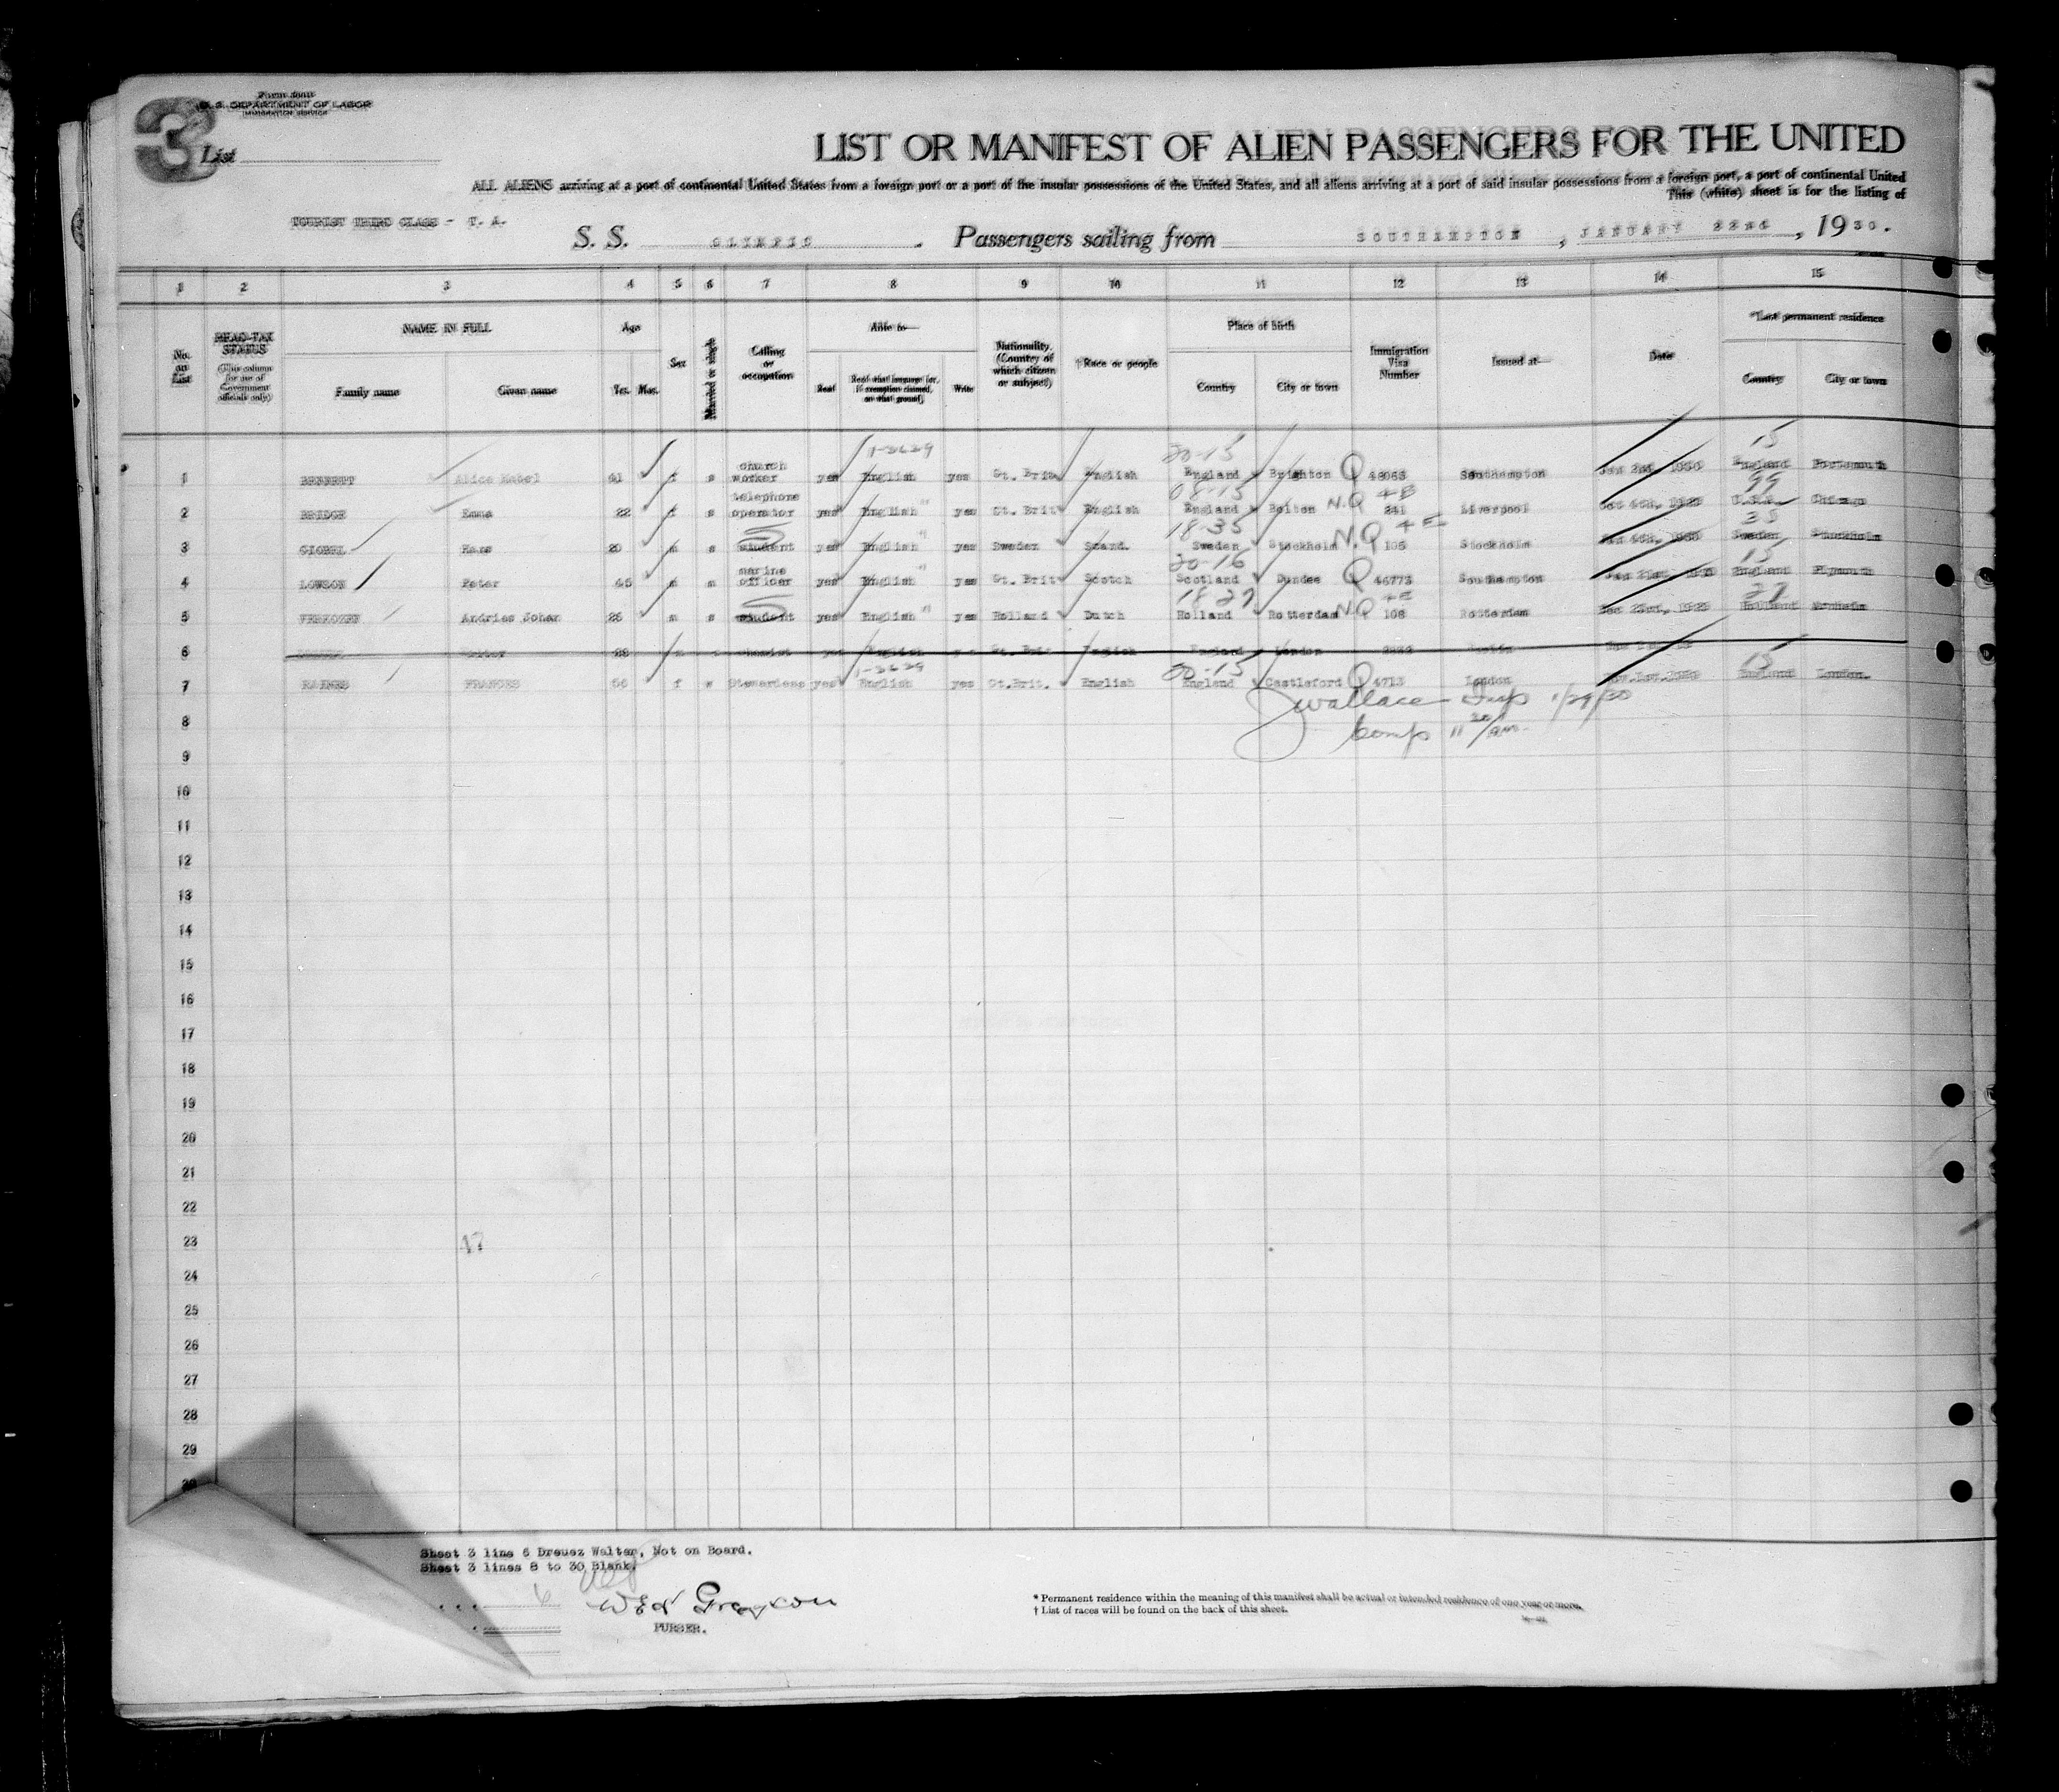 3
Form 500
U. S. DEPARTMENT OF LABOR
IMMIGRATION SERVICE
List
LIST OR MANIFEST OF ALIEN PASSENGERS FOR THE UNITED
ALL ALIENS arriving at a port of continental United States from a foreign port or a port of the insular possessions of the United States, and all aliens arriving at a port of said insular possessions from a foreign port, a port of continental United
This (white) sheet is for the listing of
TOURIST THIRD CLASS - T. A.
S. S. OLYMPIC . Passengers sailing from SOUTHAMPTON , JANUARY 22nd , 1930.
1 2 3 4 5 6 7 8 9 10 11 12 13 14 15
No. on List
HEAD-TAX STATUS (This column for use of Government officials only)
NAME IN FULL Family name Given name
Age Yrs. Mos.
Sex
Married or single
Calling or occupation
Able to— Read Read what language [or, if exemption claimed, on what ground] Write
Nationality. (Country of which citizen or subject)
†Race or people
Place of birth Country City or town
Immigration Visa Number
Issued at—
Date
*Last permanent residence Country City or town
1-3629 20-15 15
1 BENNETT Alice Mabel 41 f s church worker yes English yes Gt. Brit English England Brighton Q Southampton Jan 2nd, 1930 England Portsmouth
08-15 99
2 BRIDGE Emma 22 f s telephone operator yes English " yes Gt. Brit English England Bolton N.Q 241 Liverpool U.S.A. Chicago
18-35 35
3 Hans 20 m s student yes English " yes Sweden Scand. Sweden Stockholm N.Q 105 Stockholm Sweden Stockholm
20-16 15
4 LOWSON Peter 45 m m marine officer yes English " yes Gt. Brit Scotch Scotland Dundee Q 46773 Southampton England Plymouth
18-27 27
5 Andries Johan 25 m s student yes English " yes Holland Dutch Holland Rotterdam N.Q 108 Rotterdam Dec 23rd, Holland Arnhem
6 Walter 28 yes English Gt. Brit English England London
1-3629 20-15 15
7 RAINES FRANCES 56 f w Stewardess yes English yes Gt.Brit. English England Castleford Q 4713 London England London.
Jwallace Insp 1/29/30
8
9
10
11
12
13
14
15
16
17
18
19
20
21
22
23 17
24
25
26
27
28
29
30
Sheet 3 line 6 Dreuez Walter, Not on Board.
Sheet 3 lines 8 to 30 Blank.
6
PURSER.
* Permanent residence within the meaning of this manifest shall be actual or intended residence of one year or more.
† List of races will be found on the back of this sheet.